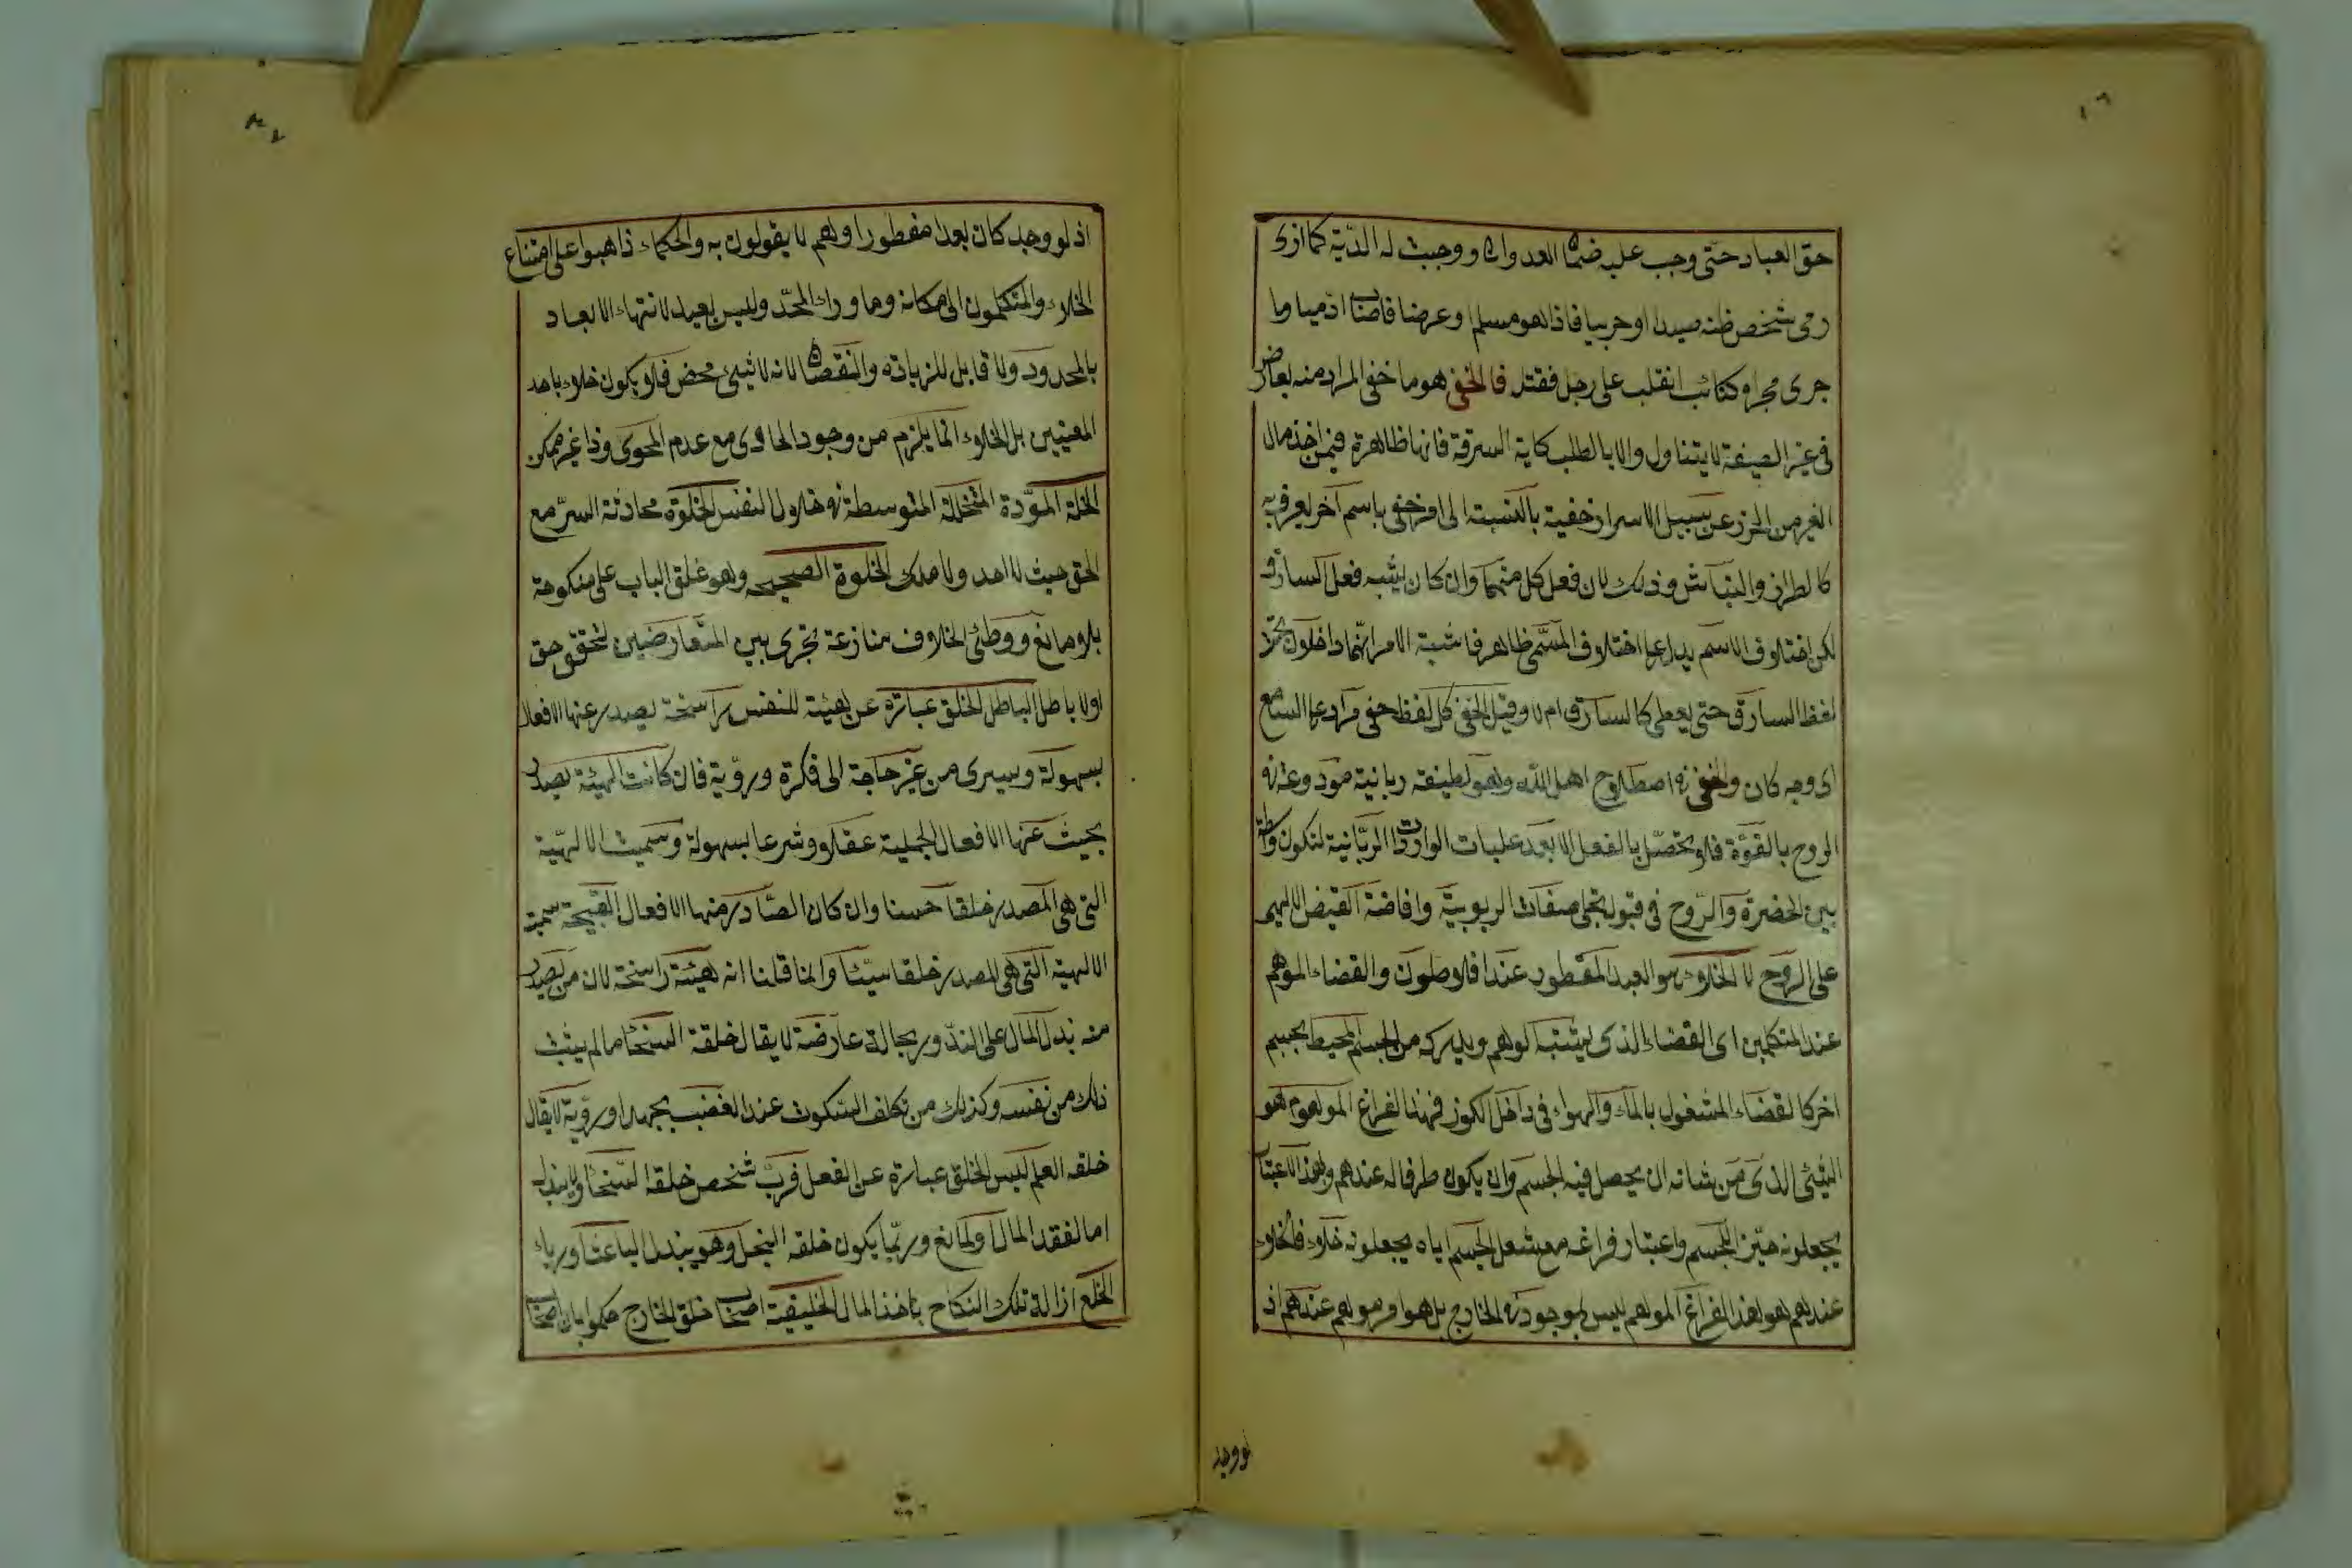 حق العباد حتى وجب عليه ضمان العدوان ووجبت له الدية كما اذى
رمى شخص ظنه صيدا او حربيا فاذا هو مسلم او عرضا فاصاب ادميا وما
جرى مجراه كنائب انقلب على رجل فقتله فالخفى هو ما خفى المراد منه بعارض
فى غير الصيغة لا يتناول والا بالطلب كاية السرقة فانها ظاهرة فيمن اخذ مال
الغير من الحرز عن سبيل الاسرار خفية بالنسبة الى امر خفى باسم آخر يعرف به
كالطرار والنباش وذلك لان فعل كل منهما وان كان يشبه فعل السارق
لكن اختلاف الاسم يدل على اختلاف المسمى ظاهر فاشتبه الامر انهما داخلون تحت
لفظ السارق حتى يعطى كالسارق ام لا وقيل الخفى كل لفظ خفى مراده على السامع
اى وجه كان والخفى فى اصطلاح اهل الله وهو لطيفة ربانية مودوعة فى
الروح بالقوة فلا تحصل بالفعل الا بعد علبات الواردات الربانية لتكون واسطة
بين الحضرة والروح فى قبول تجلى صفات الربوبية وافاضة القيض الالهى
على الروح لا الخلاء هو البعد المقطور عند افلاطون والقضاء الموهم
عند المتكلمين اى القضاء الذى يثبته الوهم ويدركه من الجسم المحيط بجسم
اخر كالقضاء المشغول بالماء والهواء فى داخل الكوز فهذا الفراغ الموهوم هو
الشئ الذى من شانه ان يحصل فيه الجسم وان يكون ظرفا له عندهم وبهذا الاعتبار
يجعلونه حيزا للجسم واعتبار فراغه مع شغل الجسم اياه يجعلونه خلاء فالخلاء
عندهم هو هذا الفراغ الموهم ليس بموجود فى الخارج بل هو امر موهم عندهم اذ
لو وجد
اذ لو وجد كان بعدا مفطورا وهم لا يقولون به والحكماء ذاهبوا على امتناع
الخلاء والمتكلمون الى مكانه وما وراء المحدد وليس بعيد لانتهاء الابعاد
بالمحدود ولا قابل للزيادة والنقصان لانه لا شئ محض فلا يكون خلاء باحد
المعنيين بل الخلاء انما يلزم من وجود الحاوى مع عدم المحوى وذا غير ممكن
الخلة المودة المتخللة المتوسطة فى خلال النفس الخلوة محادثة السر مع
الحق حيث لا احد ولا ملك الخلوة الصحيحه وهو غلق الباب على منكوحة
بلا مانغ ووطئ الخلاف منازعة تجرى بين المتعارضين لتحقق حق
اولا باطل الباطل الخلق عبارة عن هيئة للنفس راسخة يصدر عنها الافعال
بسهولة وسيرى من غير حاجة الى فكرة ورؤية فان كانت الهيئة يصدر
بحيث عنها الافعال الجملية عقلا وشرعا بسهولة وسميت الالهية
التى هى المصدر خلقا حسنا وان كان الصادر منها الافعال القبيحة سميت
الالهية التى هى المصدر خلقا سيئا وانما قلنا انه هيئة راسخة لان من يصدر
منه بذل المال على الندور بجالة عارضة لا يقال خلقه السخا ما لم يثبت
ذلك من نفسه وكذلك من تكلف السكوت عند الغضب بجهد او رؤية لا يقال
خلقه العلم ليس الخلق عبارة عن الفعل فرب شخص خلقه السخا ولا يبذل
اما لفقد المال او لمانع وربما يكون خلقه البخل وهو يبذل لباعث او رياء
الخلع ازالة تلك النكاح باخذ المال الخليفية اصحاب خلق الخارج حكموا بان اصحاب